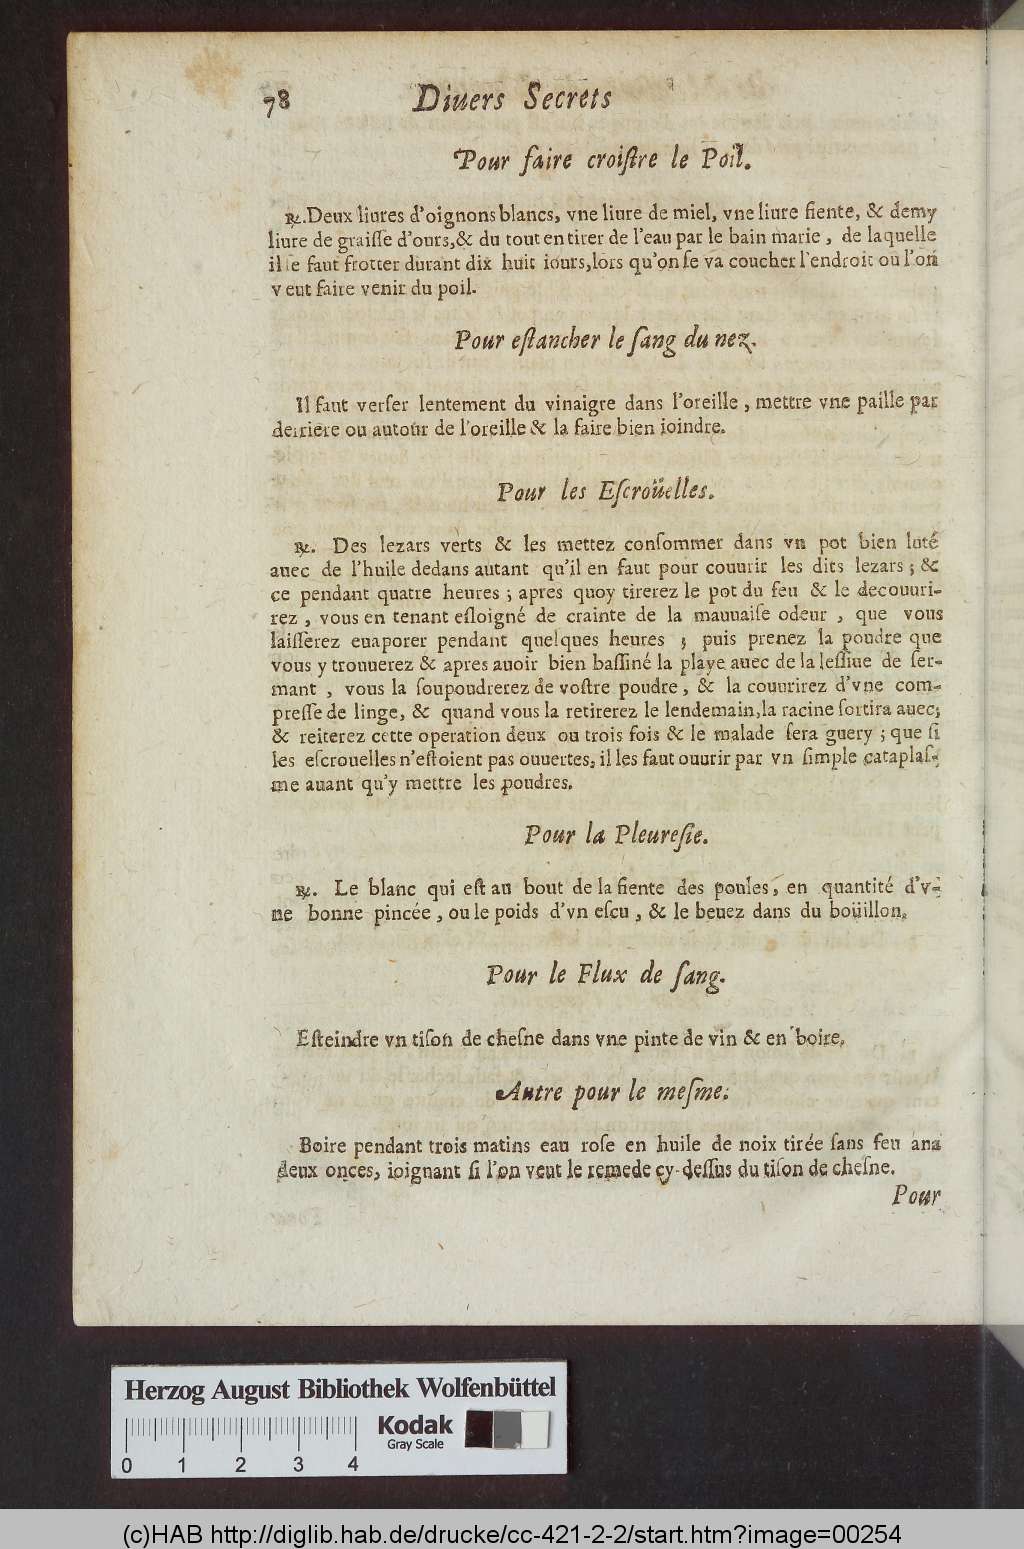 78 Diuers Secrets
Pour faire croiſtre le Poil.
℞. Deux liures d'oignons blancs, vne liure de miel, vne liure fiente, & demy
liure de graiſſe d'ours, & du tout en tirer de l'eau par le bain marie, de laquelle
il ſe faut frotter durant dix huit iours, lors qu'on ſe va coucher l'endroit où l'on
veut faire venir du poil.
Pour eſtancher le ſang du nez.
Il faut verſer lentement du vinaigre dans l'oreille, mettre vne paille par
derriere ou autour de l'oreille & la faire bien ioindre.
Pour les Eſcroüelles.
℞. Des lezars verts & les mettez conſommer dans vn pot bien luté
auec de l'huile dedans autant qu'il en faut pour couurir les dits lezars ; &
ce pendant quatre heures ; apres quoy tirerez le pot du feu & le decouuri-
rez, vous en tenant eſloigné de crainte de la mauuaiſe odeur, que vous
laiſſerez euaporer pendant quelques heures ; puis prenez la poudre que
vous y trouuerez & apres auoir bien baſſiné la playe auec de la leſſiue de ſer-
mant, vous la ſoupoudrerez de voſtre poudre, & la couurirez d'vne com-
preſſe de linge, & quand vous la retirerez le lendemain, la racine ſortira auec;
& reiterez cette operation deux ou trois fois & le malade ſera guery ; que ſi
les eſcrouelles n'eſtoient pas ouuertes, il les faut ouurir par vn ſimple cataplaſ-
me auant qu'y mettre les poudres.
Pour la Pleureſie.
℞. Le blanc qui eſt au bout de la fiente des poules, en quantité d'v-
ne bonne pincée, ou le poids d'vn eſcu, & le beuez dans du boüillon.
Pour le Flux de ſang.
Eſteindre vn tiſon de cheſne dans vne pinte de vin & en boire.
Autre pour le meſme.
Boire pendant trois matins eau roſe en huile de noix tirée ſans feu ana
deux onces, ioignant ſi l'on veut le remede cy-deſſus du tiſon de cheſne.
Pour
Herzog August Bibliothek Wolfenbüttel
Kodak
Gray Scale
0 1 2 3 4
(c)HAB http://diglib.hab.de/drucke/cc-421-2-2/start.htm?image=00254